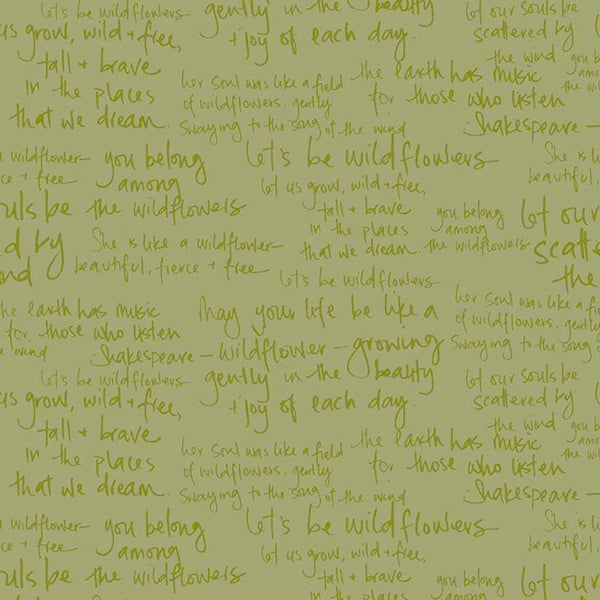 let's be wildflowers
gently in the beauty
+ joy of each day.
let our souls be
scattered by
the wind
us grow, wild + free,
tall + brave
in the places
that we dream..
her soul was like a field
of wildflowers, gently
swaying to the song of the wind
the earth has music
for those who listen
-Shakespeare-
you be
among
the wil
a wildflower-
ce + free
you belong
among
ouls be the wildflowers
let's be wildflowers
let us grow, wild + free,
tall + brave
in the places
that we dream..
you belong
among
the wildflowers
She is l
beautiful,
let our
scatte
the
d by
nd
She is like a wildflower-
beautiful, fierce + free
let's be wildflowers
he earth has music
for those who listen
-Shakespeare-
e wind
may your life be like a
wildflower - growing
gently in the beauty
+ joy of each day.
her soul was like a fi
of wildflowers, gently
swaying to the song
let's be wildflowers
us grow, wild + free,
tall + brave
in the places
that we dream..
let our souls be
scattered by
the wind
her soul was like a field
of wildflowers, gently
swaying to the song of the wind
the earth has music
for those who listen
-Shakespeare-
you be
among
the wil
a wildflower-
ce + free
you belong
among
ouls be the wildflowers
let's be wildflowers
let us grow, wild + free,
tall + brave
in the places
you belong
among
She is l
beautiful,
let our
scatte